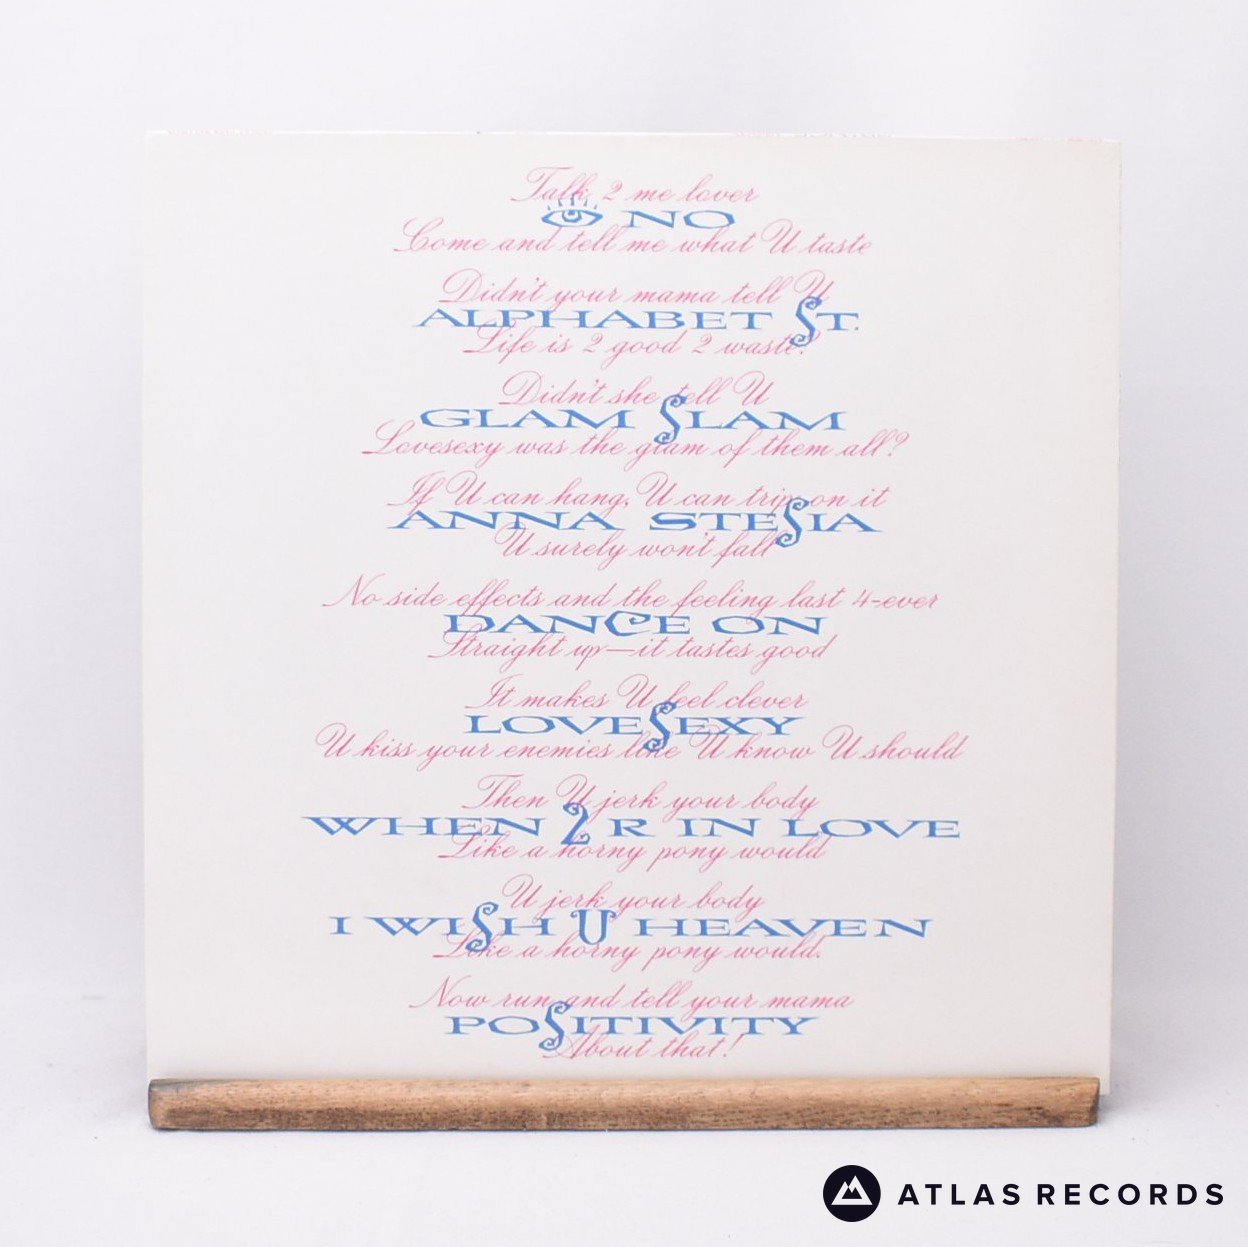 Talk 2 me lover
NO
Come and tell me what U taste
Didn't your mama tell U
ALPHABET ST.
Life is 2 good 2 waste?
Didn't she tell U
GLAM SLAM
Lovesexy was the glam of them all?
If U can hang, U can trip on it
ANNA STESIA
U surely won't fall
No side effects and the feeling last 4-ever
DANCE ON
Straight up—it tastes good
It makes U feel clever
LOVESEXY
U kiss your enemies like U know U should
Then U jerk your body
WHEN 2 R IN LOVE
Like a horny pony would
U jerk your body
I WISH U HEAVEN
Like a horny pony would.
Now run and tell your mama
POSITIVITY
About that!
ATLAS RECORDS